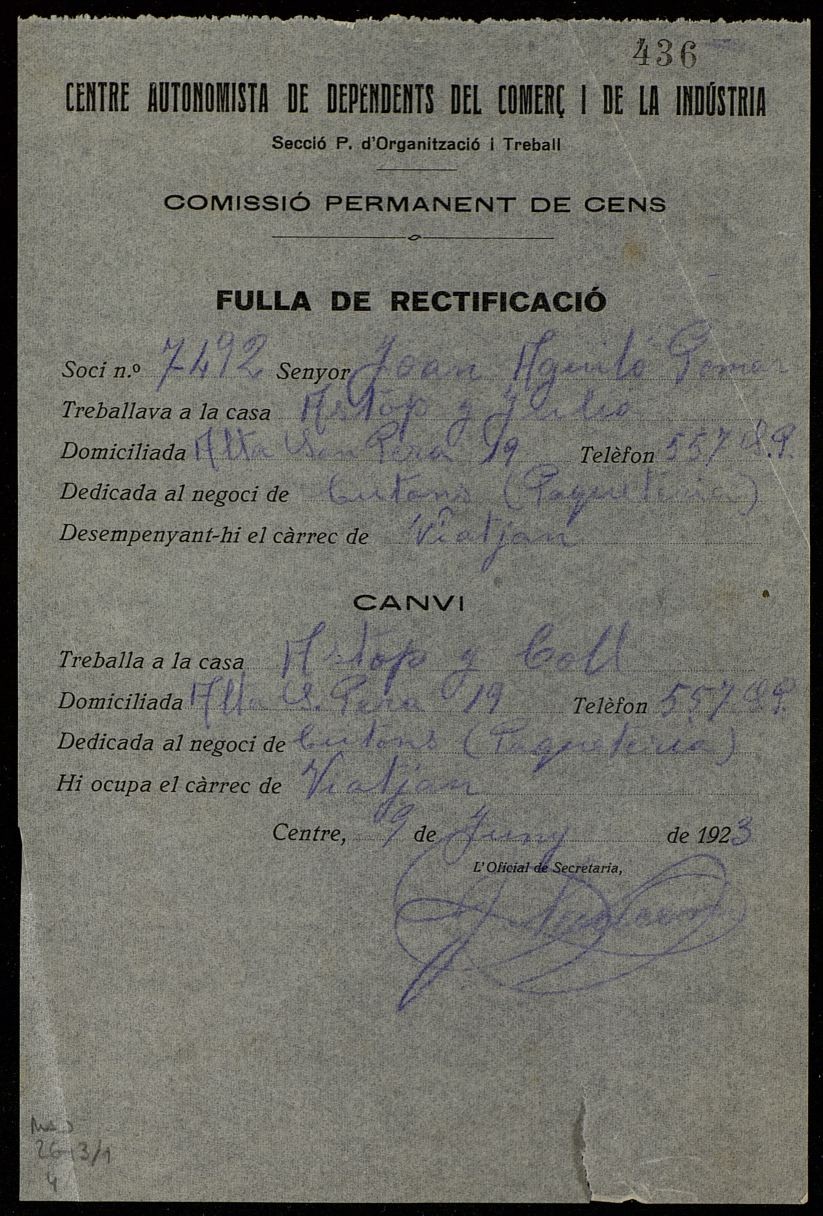 436
CENTRE AUTONOMISTA DE DEPENDENTS DEL COMERÇ I DE LA INDÚSTRIA
Secció P. d'Organització i Treball
COMISSIÓ PERMANENT DE CENS
FULLA DE RECTIFICACIÓ
Soci n.º 7492 Senyor Joan Aguiló Pomar
Treballava a la casa y Julio
Domiciliada Alta San Pera 19 Telèfon 557 S.P.
Dedicada al negoci de Cutons (Paqueteria)
Desempenyant-hi el càrrec de Viatjan
CANVI
Treballa a la casa y Coll
Domiciliada Alta S. Pera 19 Telèfon 557 S.P.
Dedicada al negoci de Cutons (Paqueteria)
Hi ocupa el càrrec de Viatjan
Centre, 9 de Juny de 1923
L'Oficial de Secretaria,
3/1
4